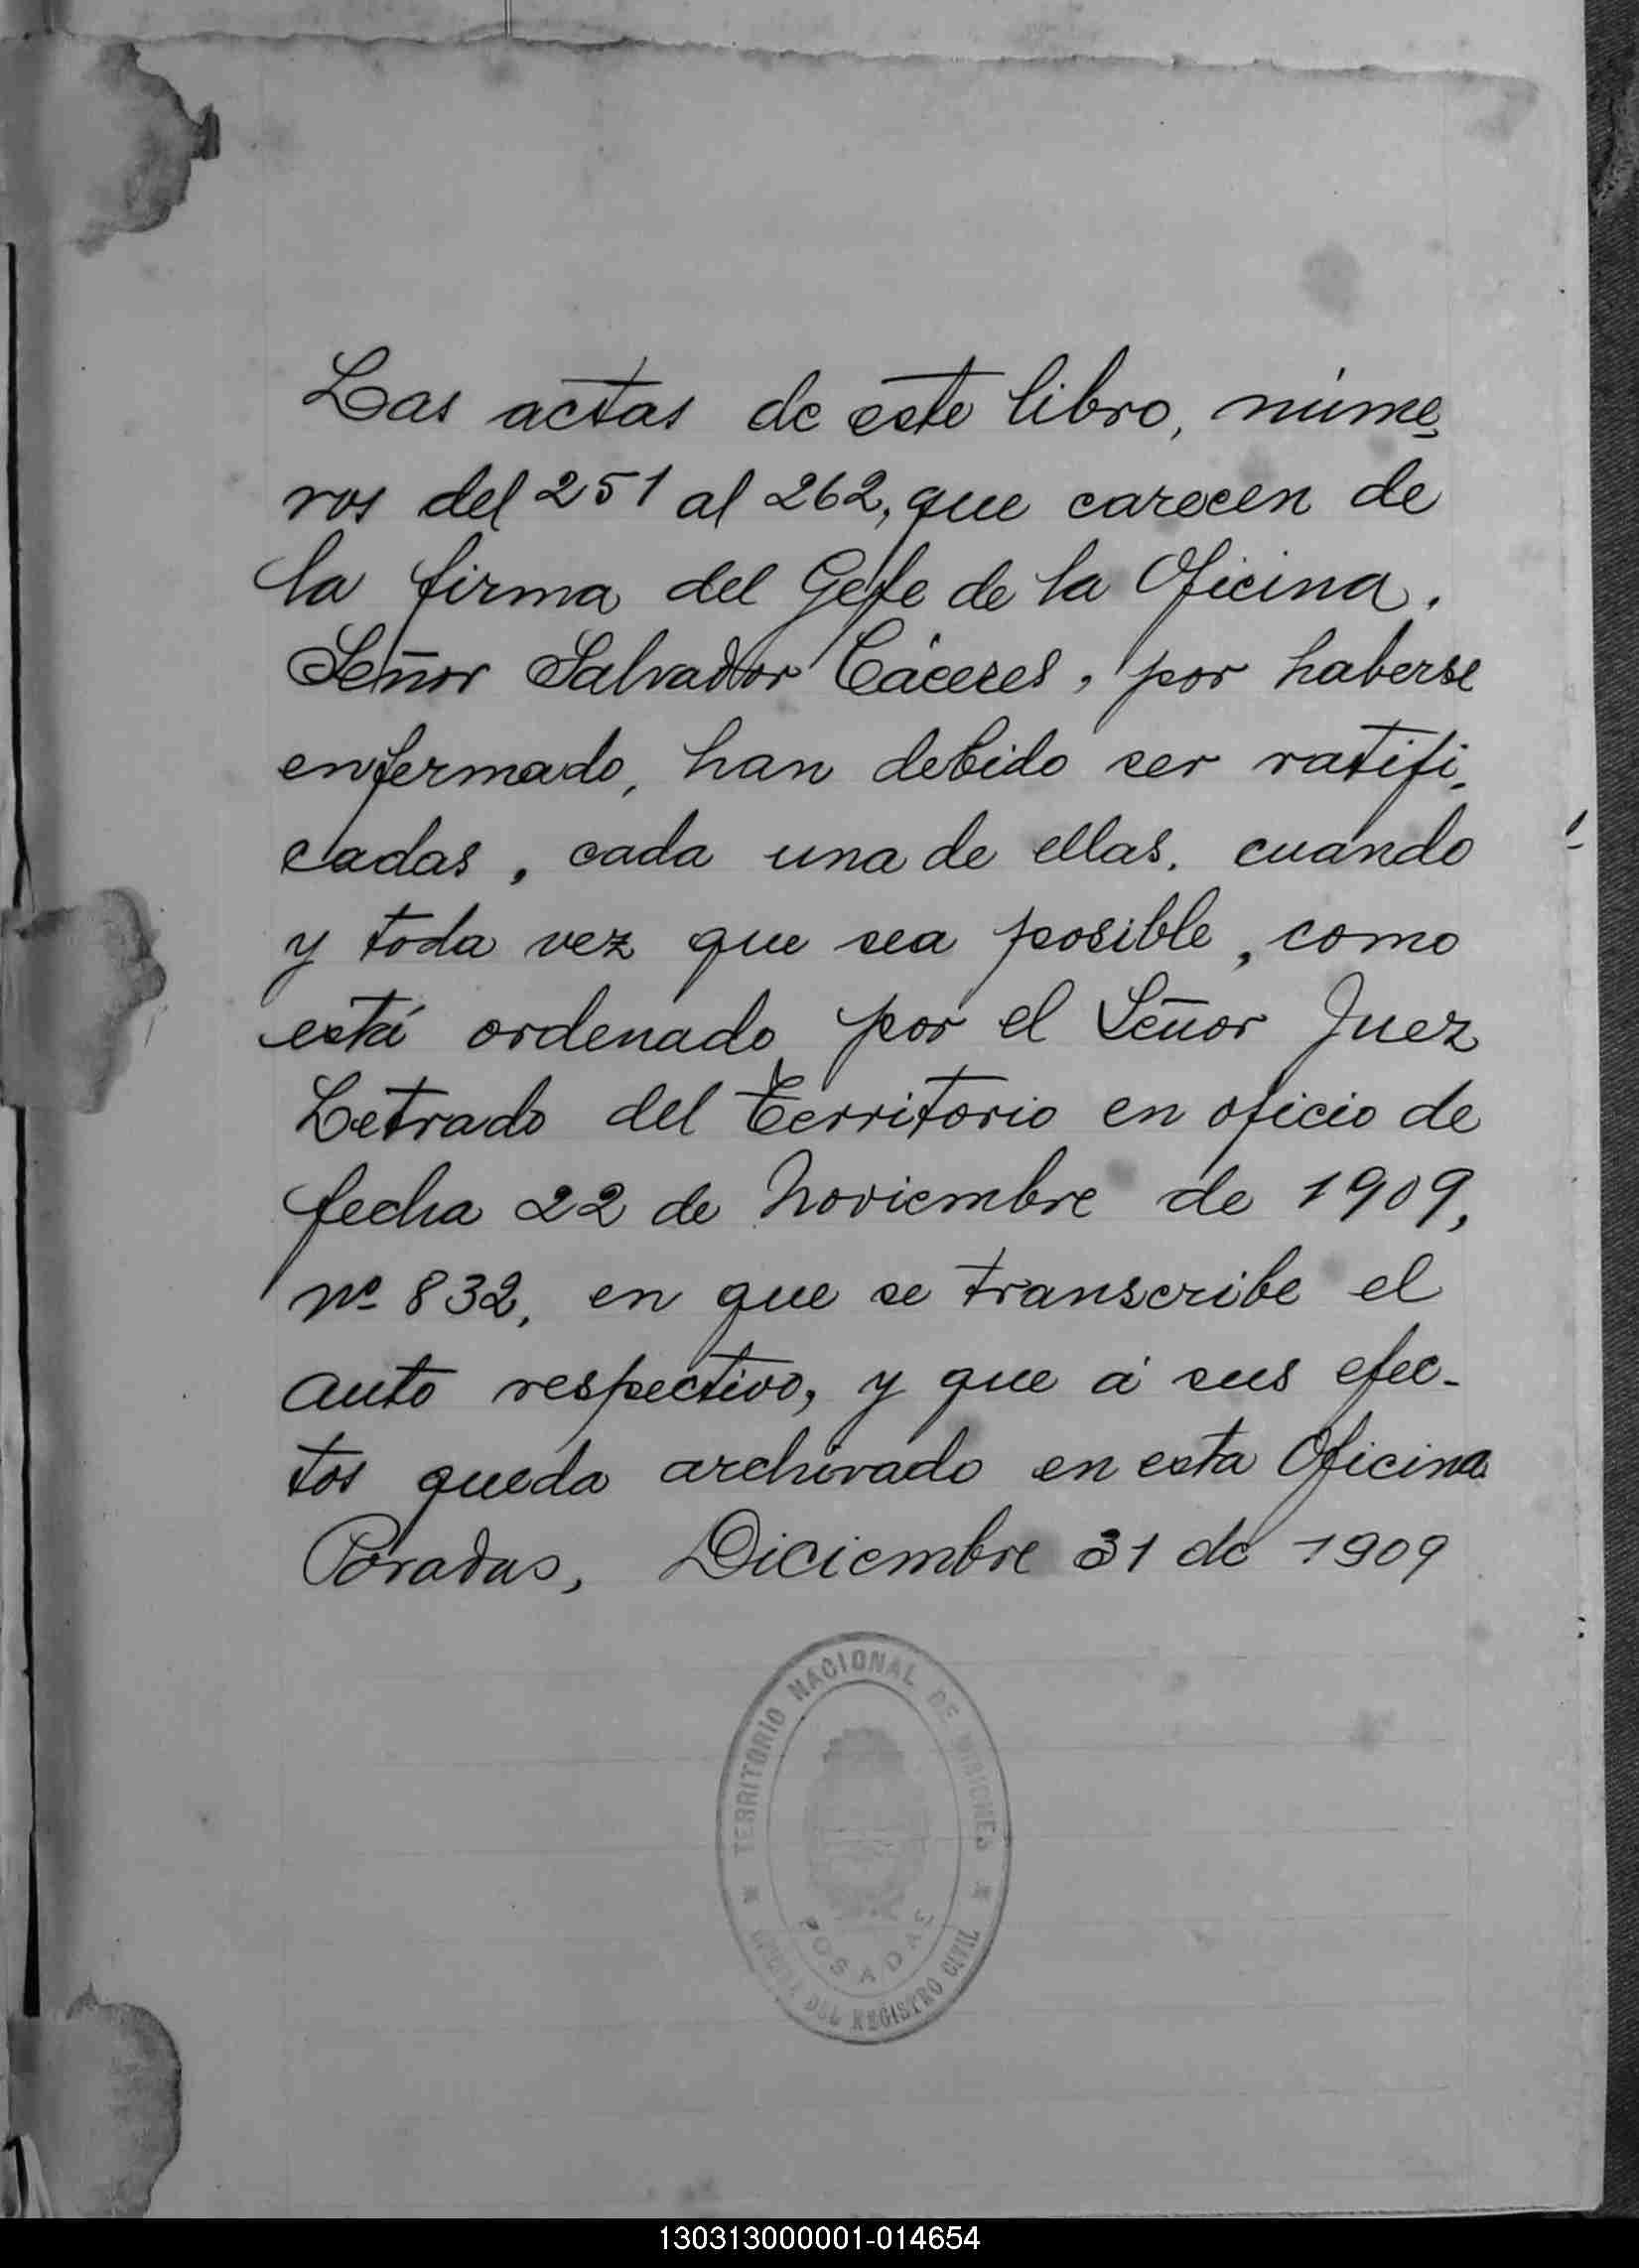 Las actas de este libro, núme-
ros del 251 al 262, que carecen de
la firma del Gefe de la Oficina,
Señor Salvador Cáceres, por haberse
enfermado, han debido ser ratifi-
cadas, cada una de ellas, cuando
y toda vez que sea posible, como
está ordenado por el Señor Juez
Letrado del Territorio en oficio de
fecha 22 de Noviembre de 1909,
nº 832, en que se transcribe el
auto respectivo, y que á sus efec-
tos queda archivado en esta Oficina
Posadas, Diciembre 31 de 1909
TERRITORIO NACIONAL DE MISIONES
POSADAS
DEL REGISTRO CIVIL
130313000001-014654